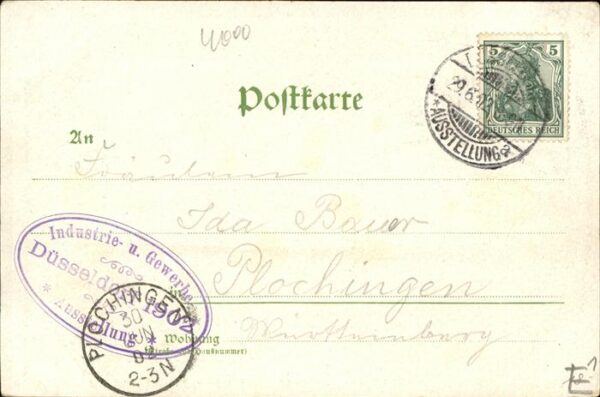 4000
5
DEUTSCHES REICH
29.6.02
*AUSSTELLUNG a
Postkarte
An
Fräulein
Ida Bauer
Plochingen
Württemberg
Wohnung
(Straße und Hausnummer)
Industrie- u. Gewerbe
Düsseldorf 1902
* Ausstellung *
PLOCHINGEN
30
JUN
02
2-3N